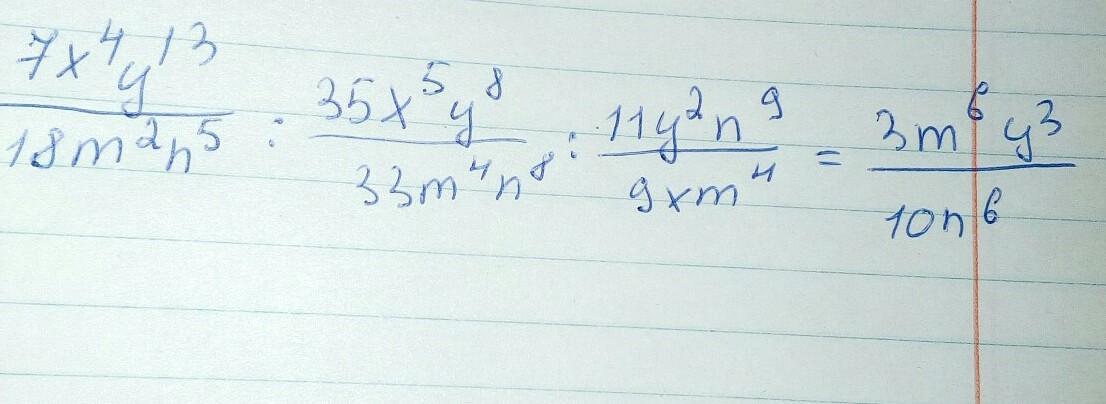 7x⁴y¹³/18m²n⁵ : 35x⁵y⁸/33m⁴n⁸ : 11y²n⁹/9xm⁴ = 3m⁶y³/10n⁶